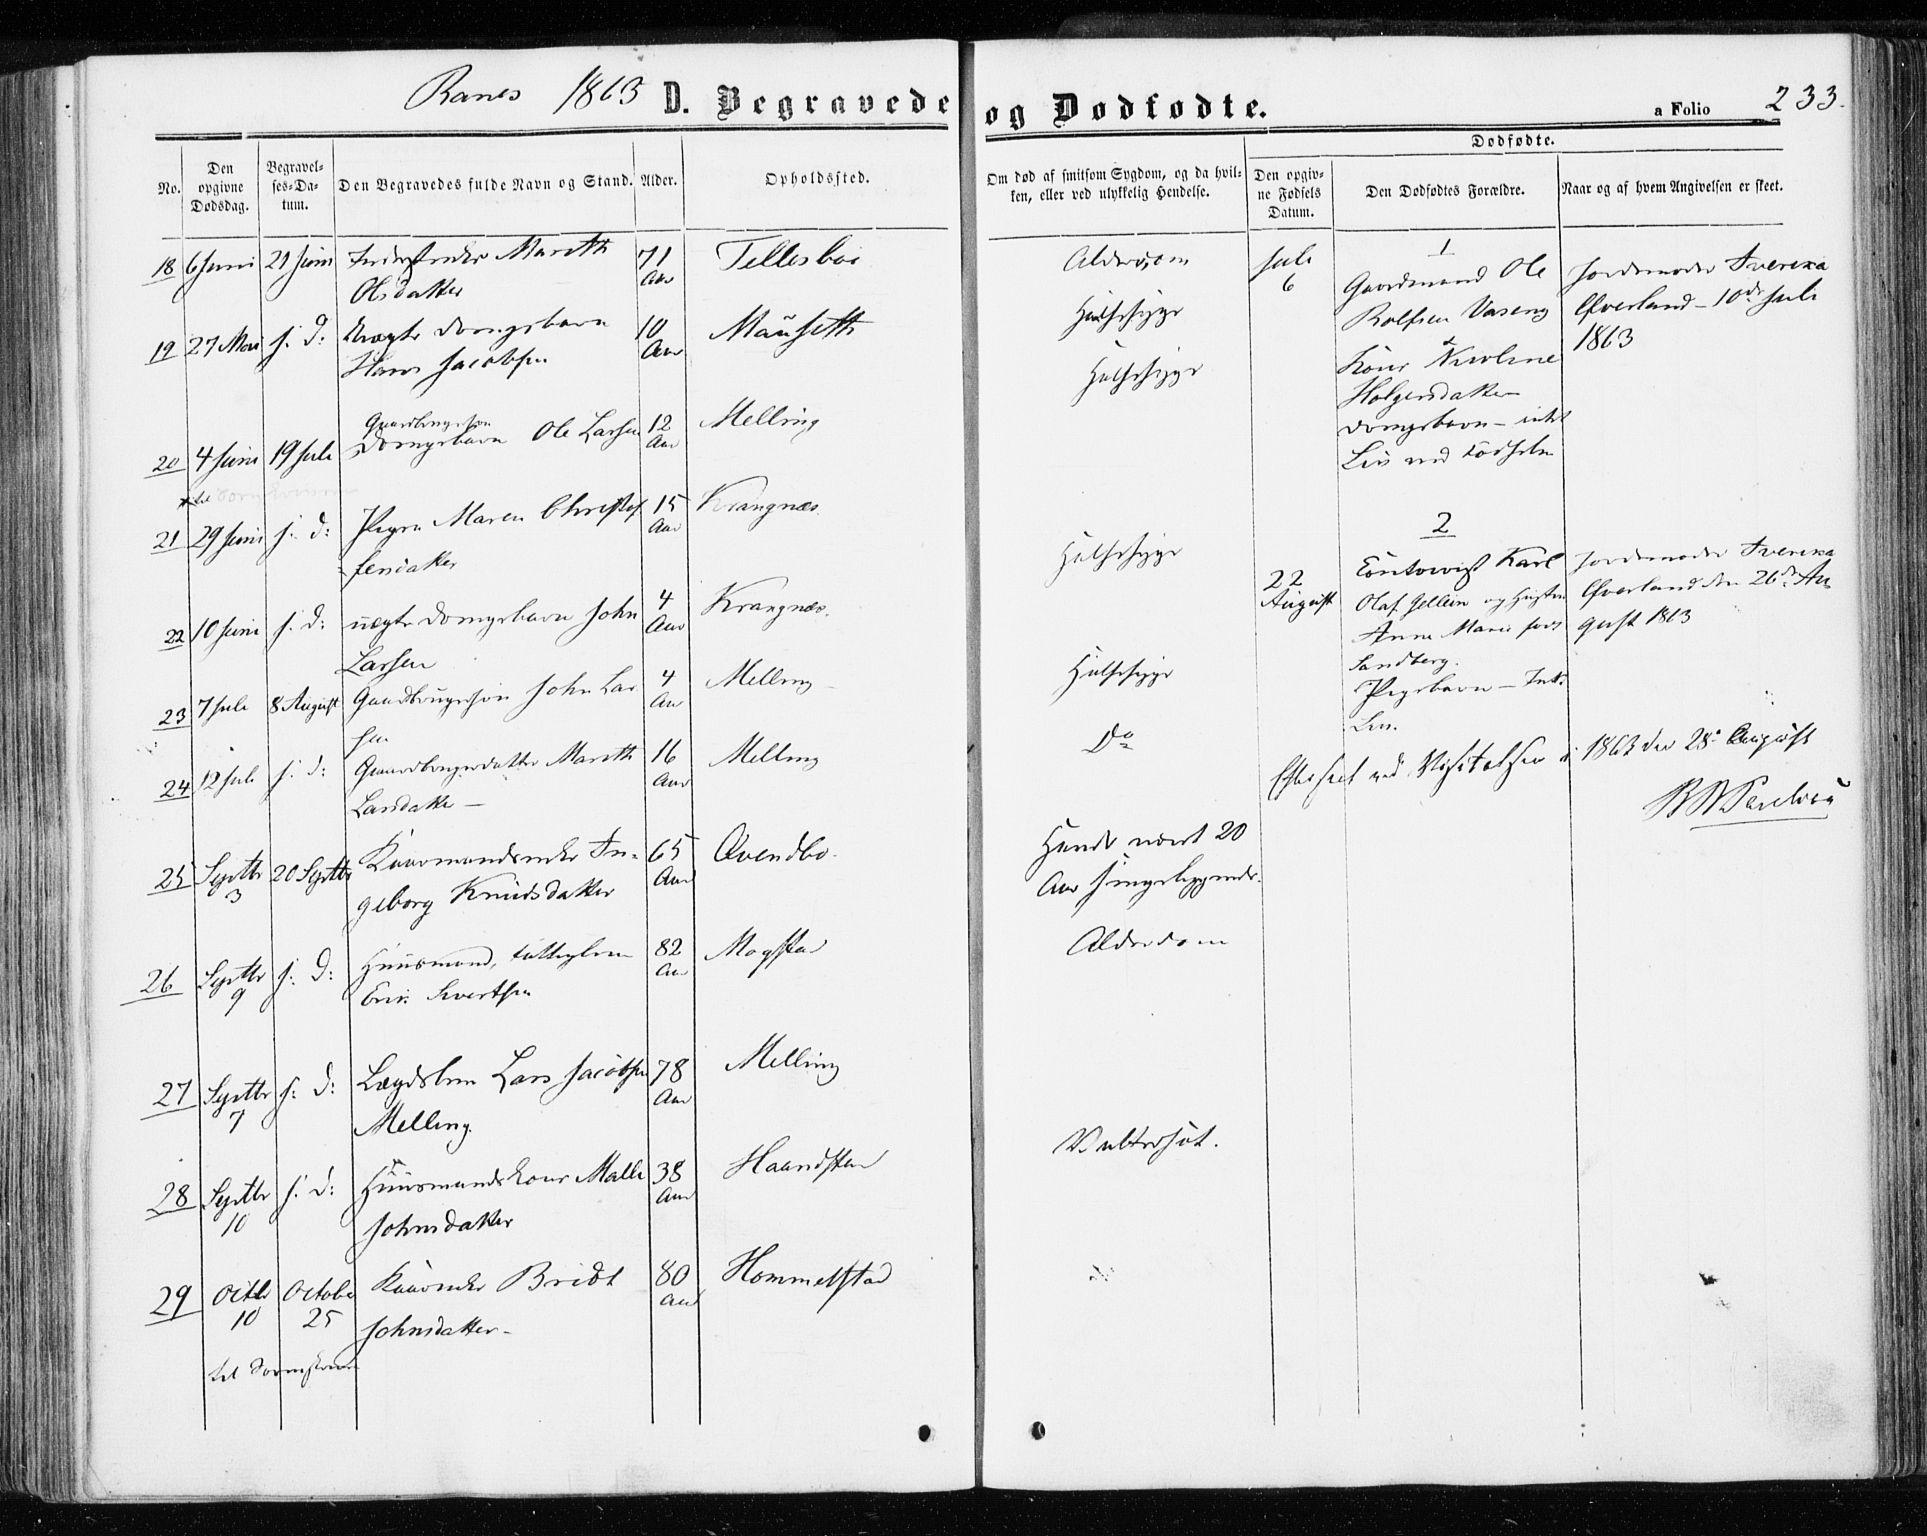 Ranes 1863 D. Begravede og Dødfødte. a Folio 233.
No.
Den opgivne Dødsdag.
Begravelses-Datum.
Den Begravedes fulde Navn og Stand.
Alder.
Opholdssted.
Om død af smitsom Sygdom, og da hvilken, eller ved ulykkelig Hendelse.
Dødfødte.
Den opgivne Fødsels Datum.
Den Dødfødtes Forældre.
Naar og af hvem Angivelsen er skeet.
18 6 Juni 21 Juni Marith 71 Tellesboe Alderdom
Olsdatter Aar
19 27 Mai s: d: Uægte Drengebarn 10 Mauseth Halssyge
Hans Jacobsen Aar
Halssyge
Gaardbrugersøn
20 4 Juni 19 Juli Drengebarn Ole Larsen 12 Melling
Aar
21 29 Juni s: d: Pigen Maren Christof 15 Krangnæs. Halssyge
fersdatter Aar
22 10 Juni s: d: uægte Drengebarn John 4 Krangnæs.
Larsen Aar
23 7 Juli 8 August Gaardbrugersøn John Lar 4 Melling Halssyge
sen Aar
24 12 Juli s: d: Gaardbrugerdatter Marith 16 Melling Do
Larsdatter Aar
25 Septbr 3 20 Septbr Kaarmandsenke In- 65 Qvendbo. Havde været 20
geborg Knudsdatter Aar Aar sengeliggende.
26 Septbr 9 s: d: Huusmand, 82 Mogstad Alderdom
Erik Sivertsen Aar
27 Septbr 7 s: d: Lægdslem Lars Jacobsen 78 Melling
Melling. Aar
28 Septbr 10 s: d: Huusmandskone Malli 38 Haandstad Vattersot.
Johnsdatter Aar
29 Octbr 10 October 25 Kaarenke Bridt 80 Hommelstad
Johnsdatter Aar
1
Juli 6 Gaardmand Ole Jordemoder
Rolfsen Vaseng Øverland 10de Juli
& Kone 1863
Holgersdatter
Drengebarn – intet
Liv ved Fødselen
2
22 August Karl Jordemoder
Olaf Gellein og Hustru Øverland den 26de Au
Anne Marie født gust 1863
Sandberg.
Pigebarn – Intet
Liv.
Efterseet ved Visitatsen i 1863 den 28de August